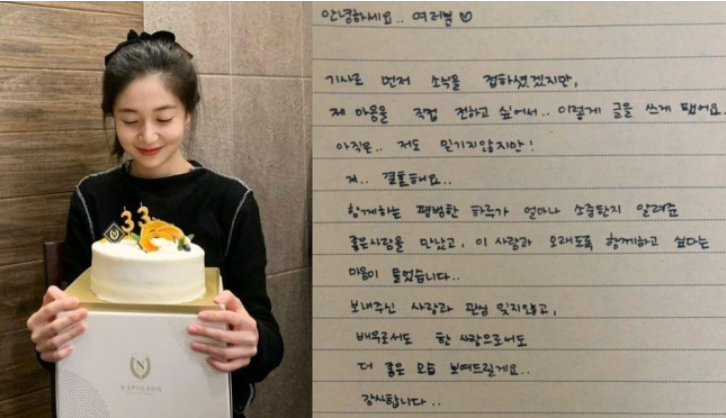 33
N
NAPOLEON
안녕하세요.. 여러분 ♡
기사로 먼저 소식을 접하셨겠지만,
제 마음을 직접 전하고 싶어서.. 이렇게 글을 쓰게 됐어요.
아직은.. 저도 믿기지않지만!
저.. 결혼해요..
함께하는 평범한 하루가 얼마나 소중한지 알려준
좋은사람을 만났고, 이 사람과 오래도록 함께하고 싶다는
마음이 들었습니다..
보내주신 사랑과 관심 잊지않고,
배우로서도 한 사람으로서도
더 좋은 모습 보여드릴게요..
감사합니다..